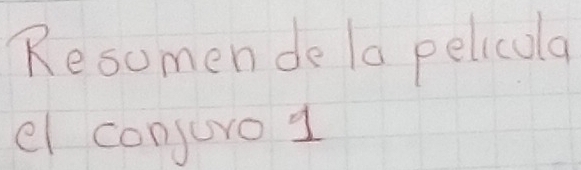 Resumen de la pelicula
el conjuro 1